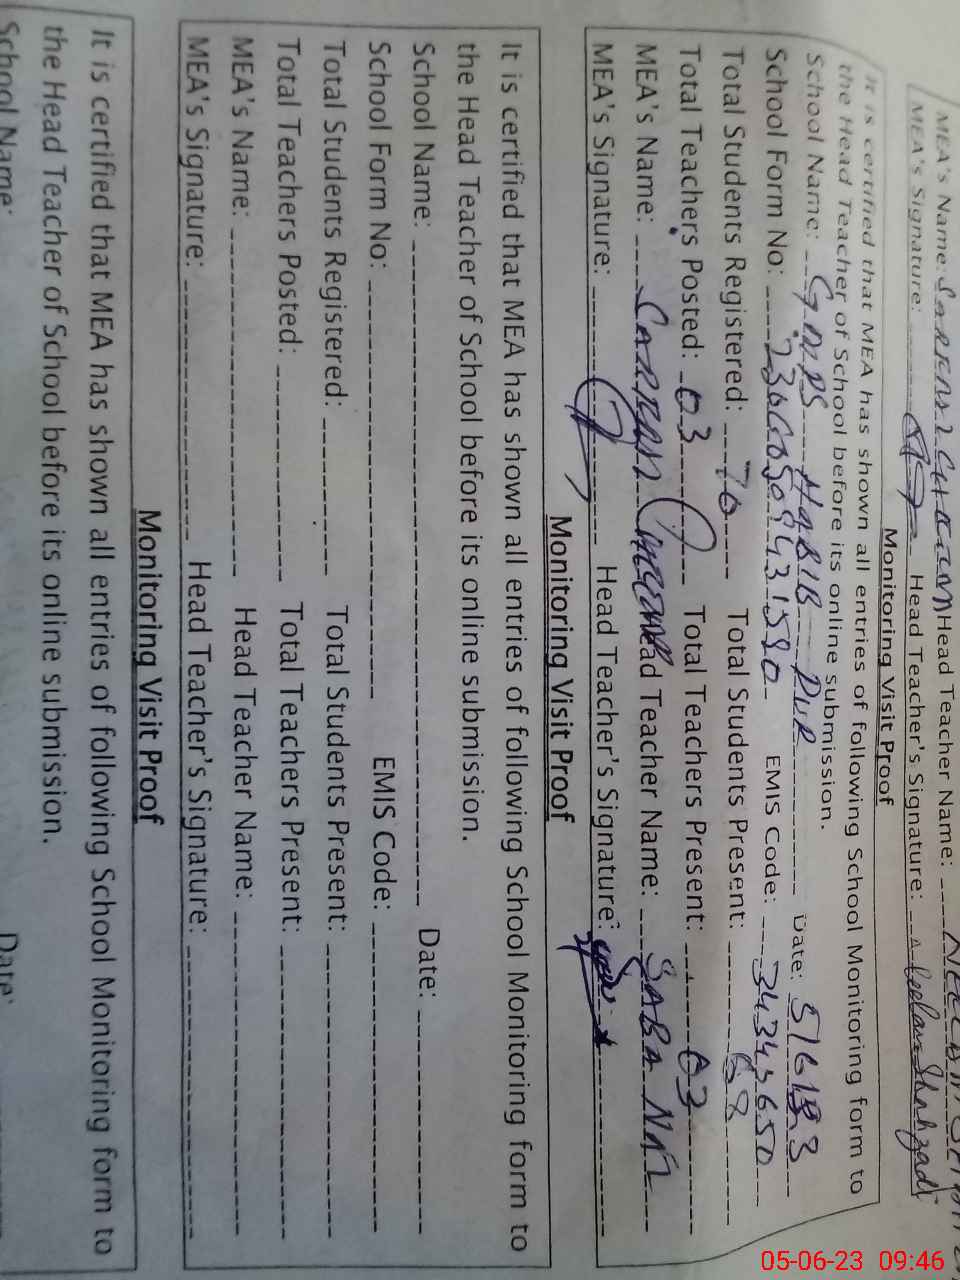 MEA's Name: Head Teacher Name:
MEA's Signature: Head Teacher's Signature:
Monitoring Visit Proof
It is certified that MEA has shown all entries of following School Monitoring form to
the Head Teacher of School before its online submission.
School Name: GMPS HABIB PUR Date: 5/6/
School Form No: EMIS Code: 34343650
Total Students Registered: 76 Total Students Present:
Total Teachers Posted: 03 Total Teachers Present: 03
MEA's Name: Head Teacher Name: SABA NAZ
MEA's Signature: Head Teacher's Signature:
Monitoring Visit Proof
It is certified that MEA has shown all entries of following School Monitoring form to
the Head Teacher of School before its online submission.
School Name: Date:
School Form No: EMIS Code:
Total Students Registered: Total Students Present:
Total Teachers Posted: Total Teachers Present:
MEA's Name: Head Teacher Name:
MEA's Signature: Head Teacher's Signature:
Monitoring Visit Proof
It is certified that MEA has shown all entries of following School Monitoring form to
the Head Teacher of School before its online submission.
School Name: Date:
05-06-23 09:46